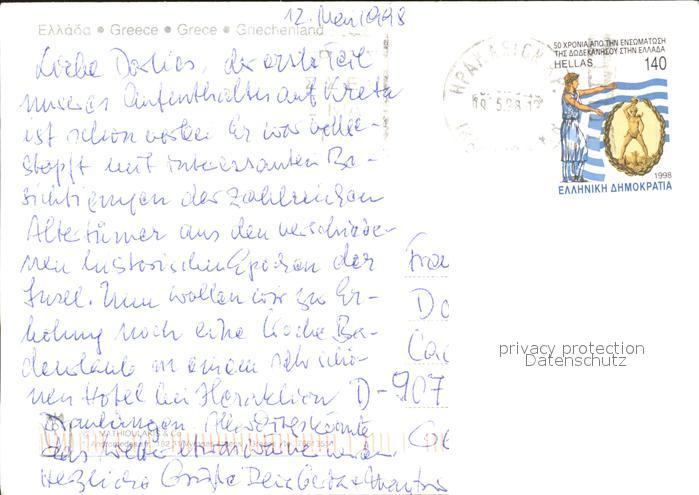 12. Mai 1998
Ελλάδα • Greece • Grece • Griechenland
Liebe, der erste Teil
unseres Aufenthaltes auf Kreta
ist schon vorbei. Er war vollge-
stopft mit interessanten Be-
sichtigungen der zahlreichen
Altertümer aus den verschiede-
nen historischen Epochen der
Insel. Nun wollen wir zu Er-
holung noch eine Woche Ba-
deurlaub in einem sehr schö-
nen Hotel bei Heraklion
Allerdings könnte
das Wetter etwas wärmer
Herzliche Grüße Dein
Fra
Do
D-907
ΗΡΑΚΛΕΙΟΝ
50 ΧΡΟΝΙΑ ΑΠΟ ΤΗΝ ΕΝΣΩΜΑΤΩΣΗ
ΤΗΣ ΔΩΔΕΚΑΝΗΣΟΥ ΣΤΗΝ ΕΛΛΑΔΑ
HELLAS 140
1998
ΕΛΛΗΝΙΚΗ ΔΗΜΟΚΡΑΤΙΑ
privacy protection
Datenschutz